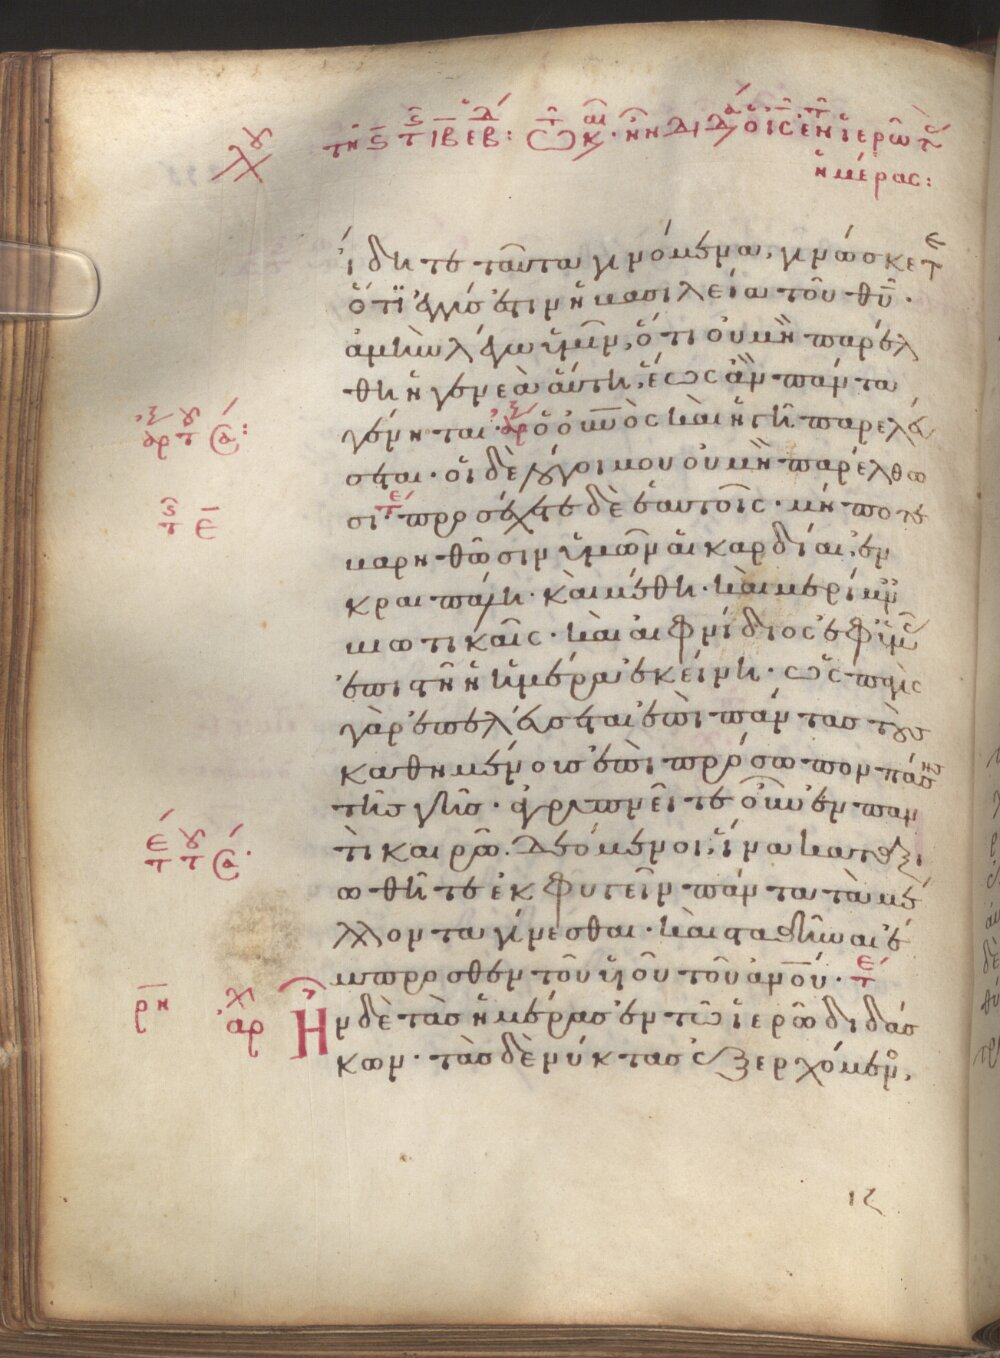 ἴδητε ταῦτα γινόμενα, γινώσκετε
ὅτι ἐγγύς ἐστιν ἡ βασιλεία τοῦ θυ.
ἀμὴν λέγω ὑμῖν, ὅτι οὐ μὴ παρέλ
θη ἡ γενεὰ αὕτη, ἕως ἂν πάντα
γένηται. ὁ οὐνος καὶ ἡ γῆ παρελεύ
σεται. οἱ δὲ λόγοι μου οὐ μὴ παρέλθω
σι. προσέχετε δὲ ἑαυτοῖς. μή ποτε
βαρηθῶσιν ὑμῶν αἱ καρδίαι, ἐν
κραιπάλη. καὶ μέθη. καὶ μερίμναις
βιωτικαῖς. καὶ αἰφνίδιος ἐφ ὑμᾶς
ἐπιστῆ ἡ ἡμέρα ἐκείνη. ὡς παγὶς
γὰρ ἐπελεύσεται ἐπὶ πάντας τοὺς
καθημένους ἐπὶ πρόσωπον πάσης
τῆς γῆς. ἀγρυπνεῖτε οὖν ἐν παν
τὶ καιρῶ. δεόμενοι, ἵνα καταξι
ωθῆτε ἐκφυγεῖν πάντα τὰ μέ
λλοντα γίνεσθαι. καὶ σταθῆναι ἔ
μπροσθεν τοῦ υἱοῦ τοῦ ἀνου.
ρη αρχ Ἦν δὲ τὰς ἡμέρας ἐν τῶ ἱερῶ διδάσ
κων. τὰς δὲ νύκτας ἐξερχόμενος,